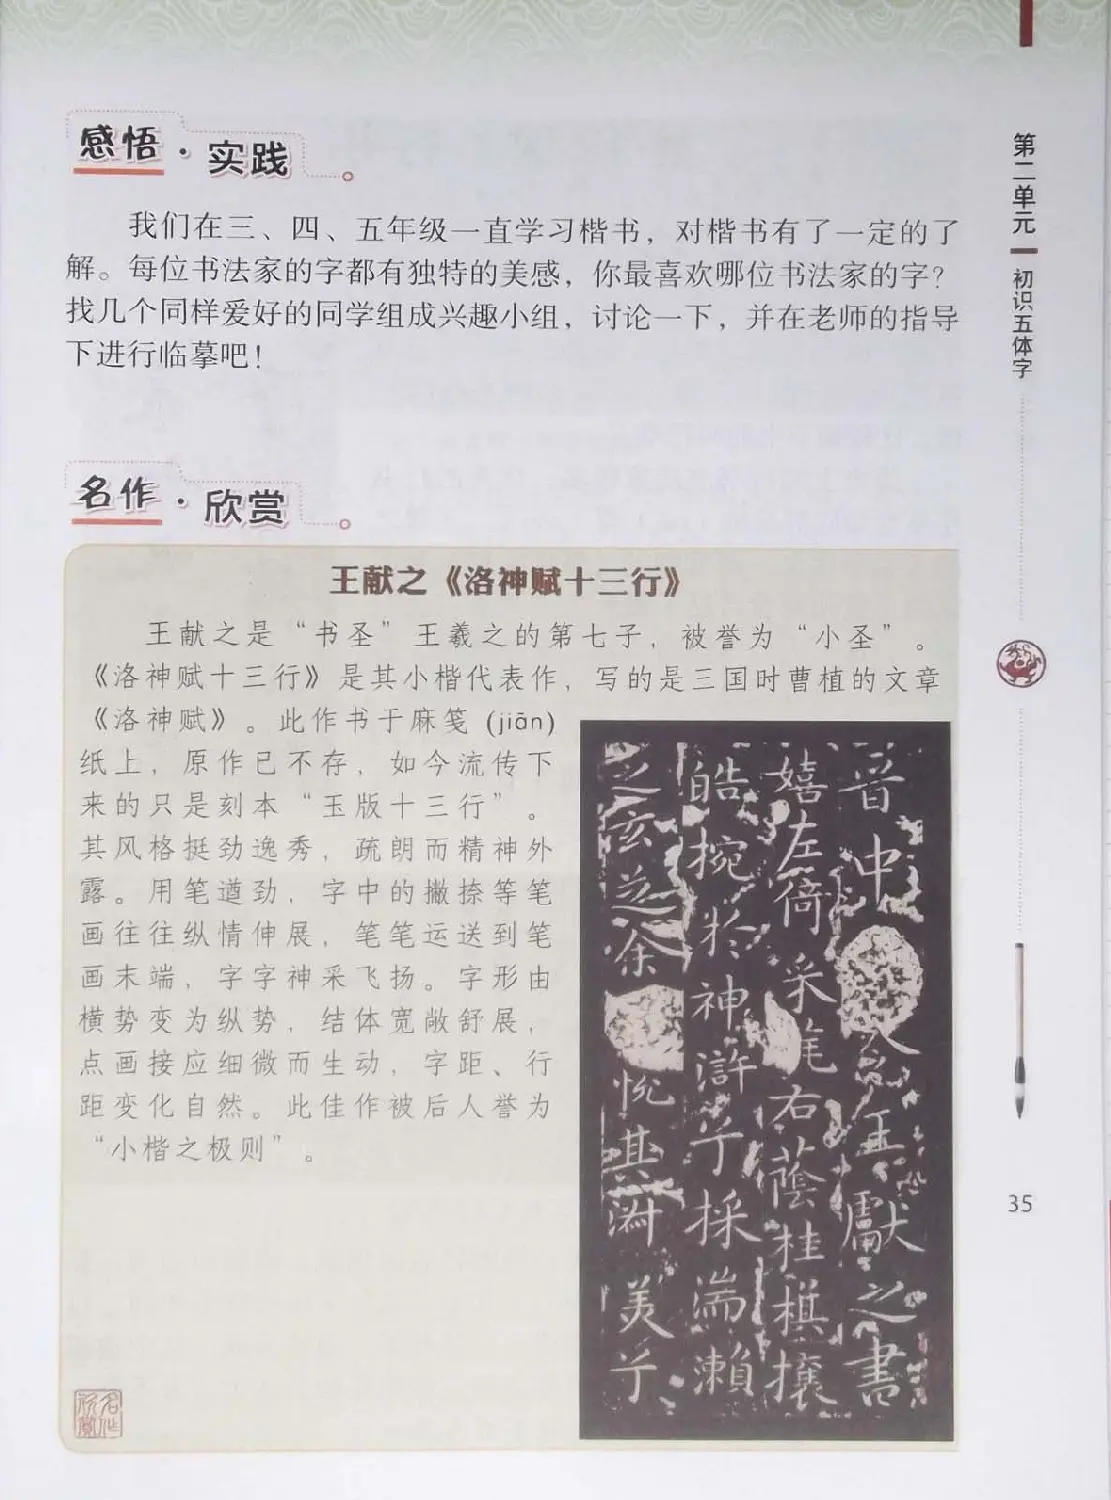 感悟·实践
我们在三、四、五年级一直学习楷书，对楷书有了一定的了
解。每位书法家的字都有独特的美感，你最喜欢哪位书法家的字？
找几个同样爱好的同学组成兴趣小组，讨论一下，并在老师的指导
下进行临摹吧！
名作·欣赏
王献之《洛神赋十三行》
王献之是“书圣”王羲之的第七子，被誉为“小圣”。
《洛神赋十三行》是其小楷代表作，写的是三国时曹植的文章
《洛神赋》。此作书于麻笺 (jiān)
纸上，原作已不存，如今流传下
来的只是刻本“玉版十三行”。
其风格挺劲逸秀，疏朗而精神外
露。用笔遒劲，字中的撇捺等笔
画往往纵情伸展，笔笔运送到笔
画末端，字字神采飞扬。字形由
横势变为纵势，结体宽敞舒展，
点画接应细微而生动，字距、行
距变化自然。此佳作被后人誉为
“小楷之极则”。
晋中令王獻之書
嬉左倚采旄右蔭桂棋攘
皓捥於神滸兮採湍瀬
之玄芝余悦其淑美兮
名作欣赏
第二单元
初识五体字
35